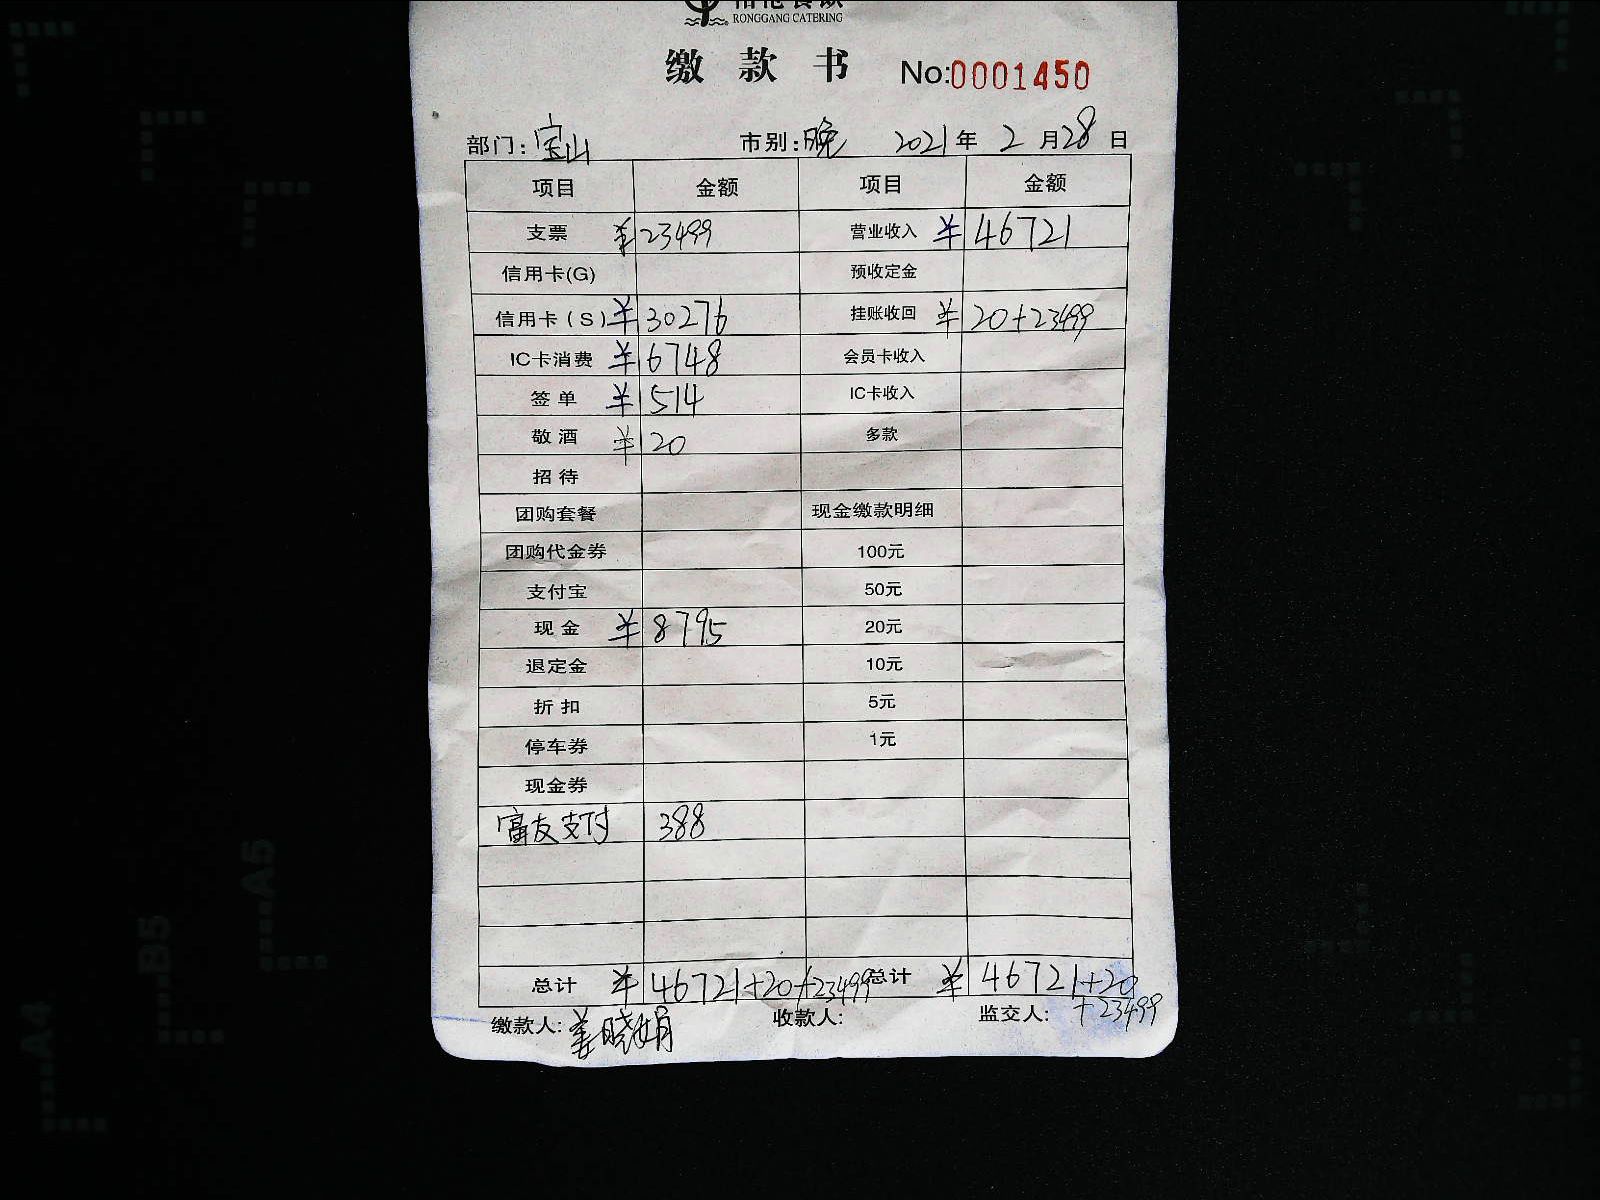 RONGGANG CATERING
缴款书 No:0001450
部门:宝山 市别:晚 2021年2月28日
项目 金额 项目 金额
支票 ¥23499 营业收入 ¥46721
信用卡(G) 预收定金
信用卡(S) ¥30276 挂账收回 ¥20+23499
IC卡消费 ¥6748 会员卡收入
签单 ¥514 IC卡收入
敬酒 ¥20 多款
招待
团购套餐 现金缴款明细
团购代金券 100元
支付宝 50元
现金 ¥8795 20元
退定金 10元
折扣 5元
停车券 1元
现金券
富友支付 388
总计 ¥46721+20+23499 总计 ¥46721+20
+23499
缴款人:姜晓娟 收款人: 监交人:
A5
B5
A4